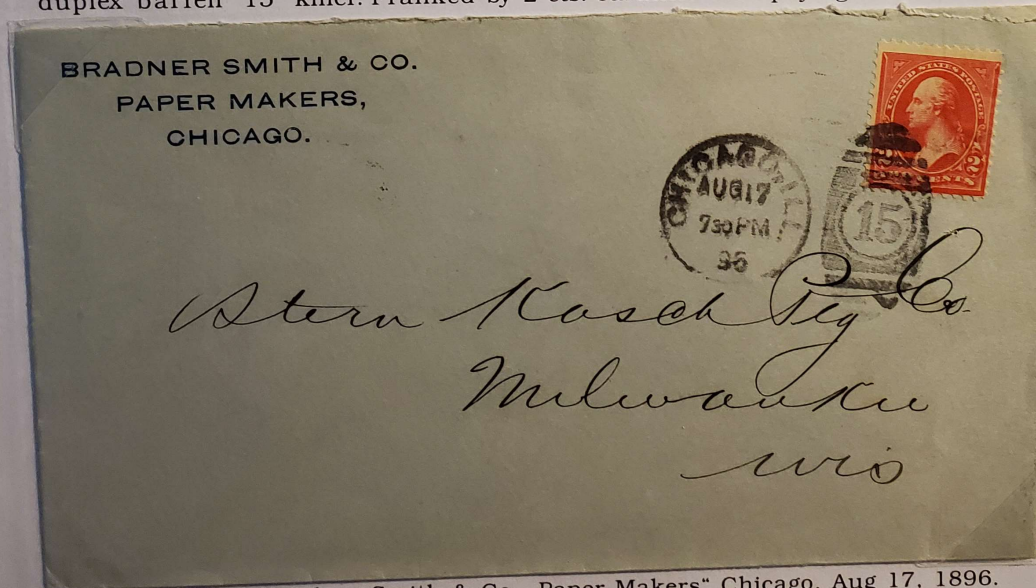 duplex barrel "15" killer. Franked by 2
BRADNER SMITH & CO.
PAPER MAKERS,
CHICAGO.
UNITED STATES POSTAGE
CHICAGO, ILL.
AUG 17
730 PM
96
15
Stern Kasch Pkg Co.
Milwaukee
Wis
Smith & Co. Paper Makers“ Chicago, Aug 17, 1896.